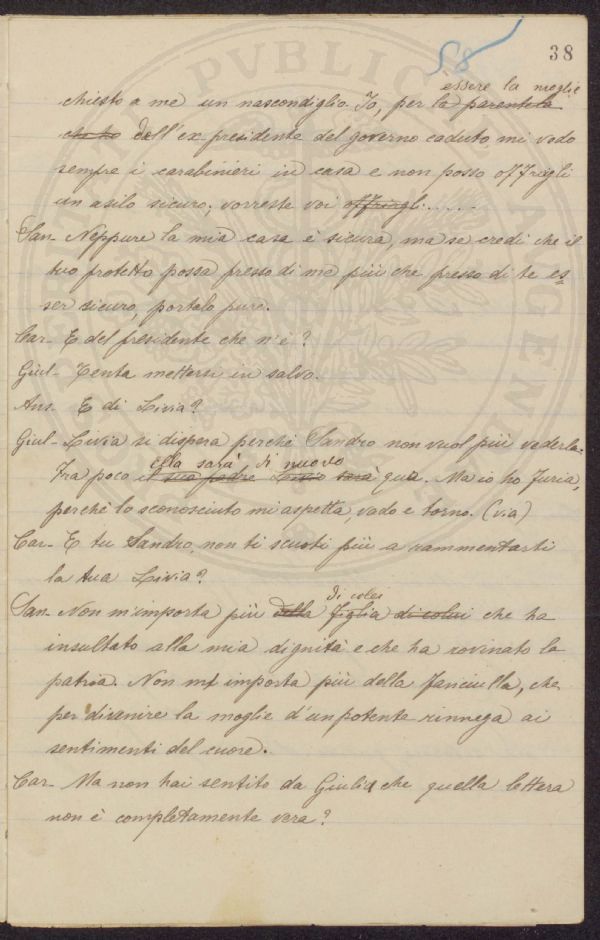 58 38
essere la moglie
chiesto a me un nascondiglio. Io, per la parentela
che ho dell'ex presidente del governo caduto, mi vedo
sempre i carabinieri in casa e non posso offrirgli
un asilo sicuro; vorreste voi offrirgli......
San- Neppure la mia casa è sicura, ma se credi che il
tuo protetto possa presso di me più che presso di te es
ser sicuro, portalo pure.
Car- E del presidente che n'è?
Giul- Tenta mettersi in salvo.
Ans. E di Livia?
Giul- Livia si dispera perchè Sandro non vuol più vederla.
ella sarà di nuovo
Fra poco il suo padre Livio sarà qua. Ma io ho furia,
perchè lo sconosciuto mi aspetta, vado e torno. (via)
Car- E tu Sandro, non ti scuoti più a rammentarti
la tua Livia?
di colei
San- Non m'importa più della figlia di colui che ha
insultato alla mia dignità e che ha rovinato la
patria. Non m'importa più della fanciulla, che
per divenire la moglie d'un potente rinnega ai
sentimenti del cuore.
Car- Ma non hai sentito da Giulia che quella lettera
non è completamente vera?